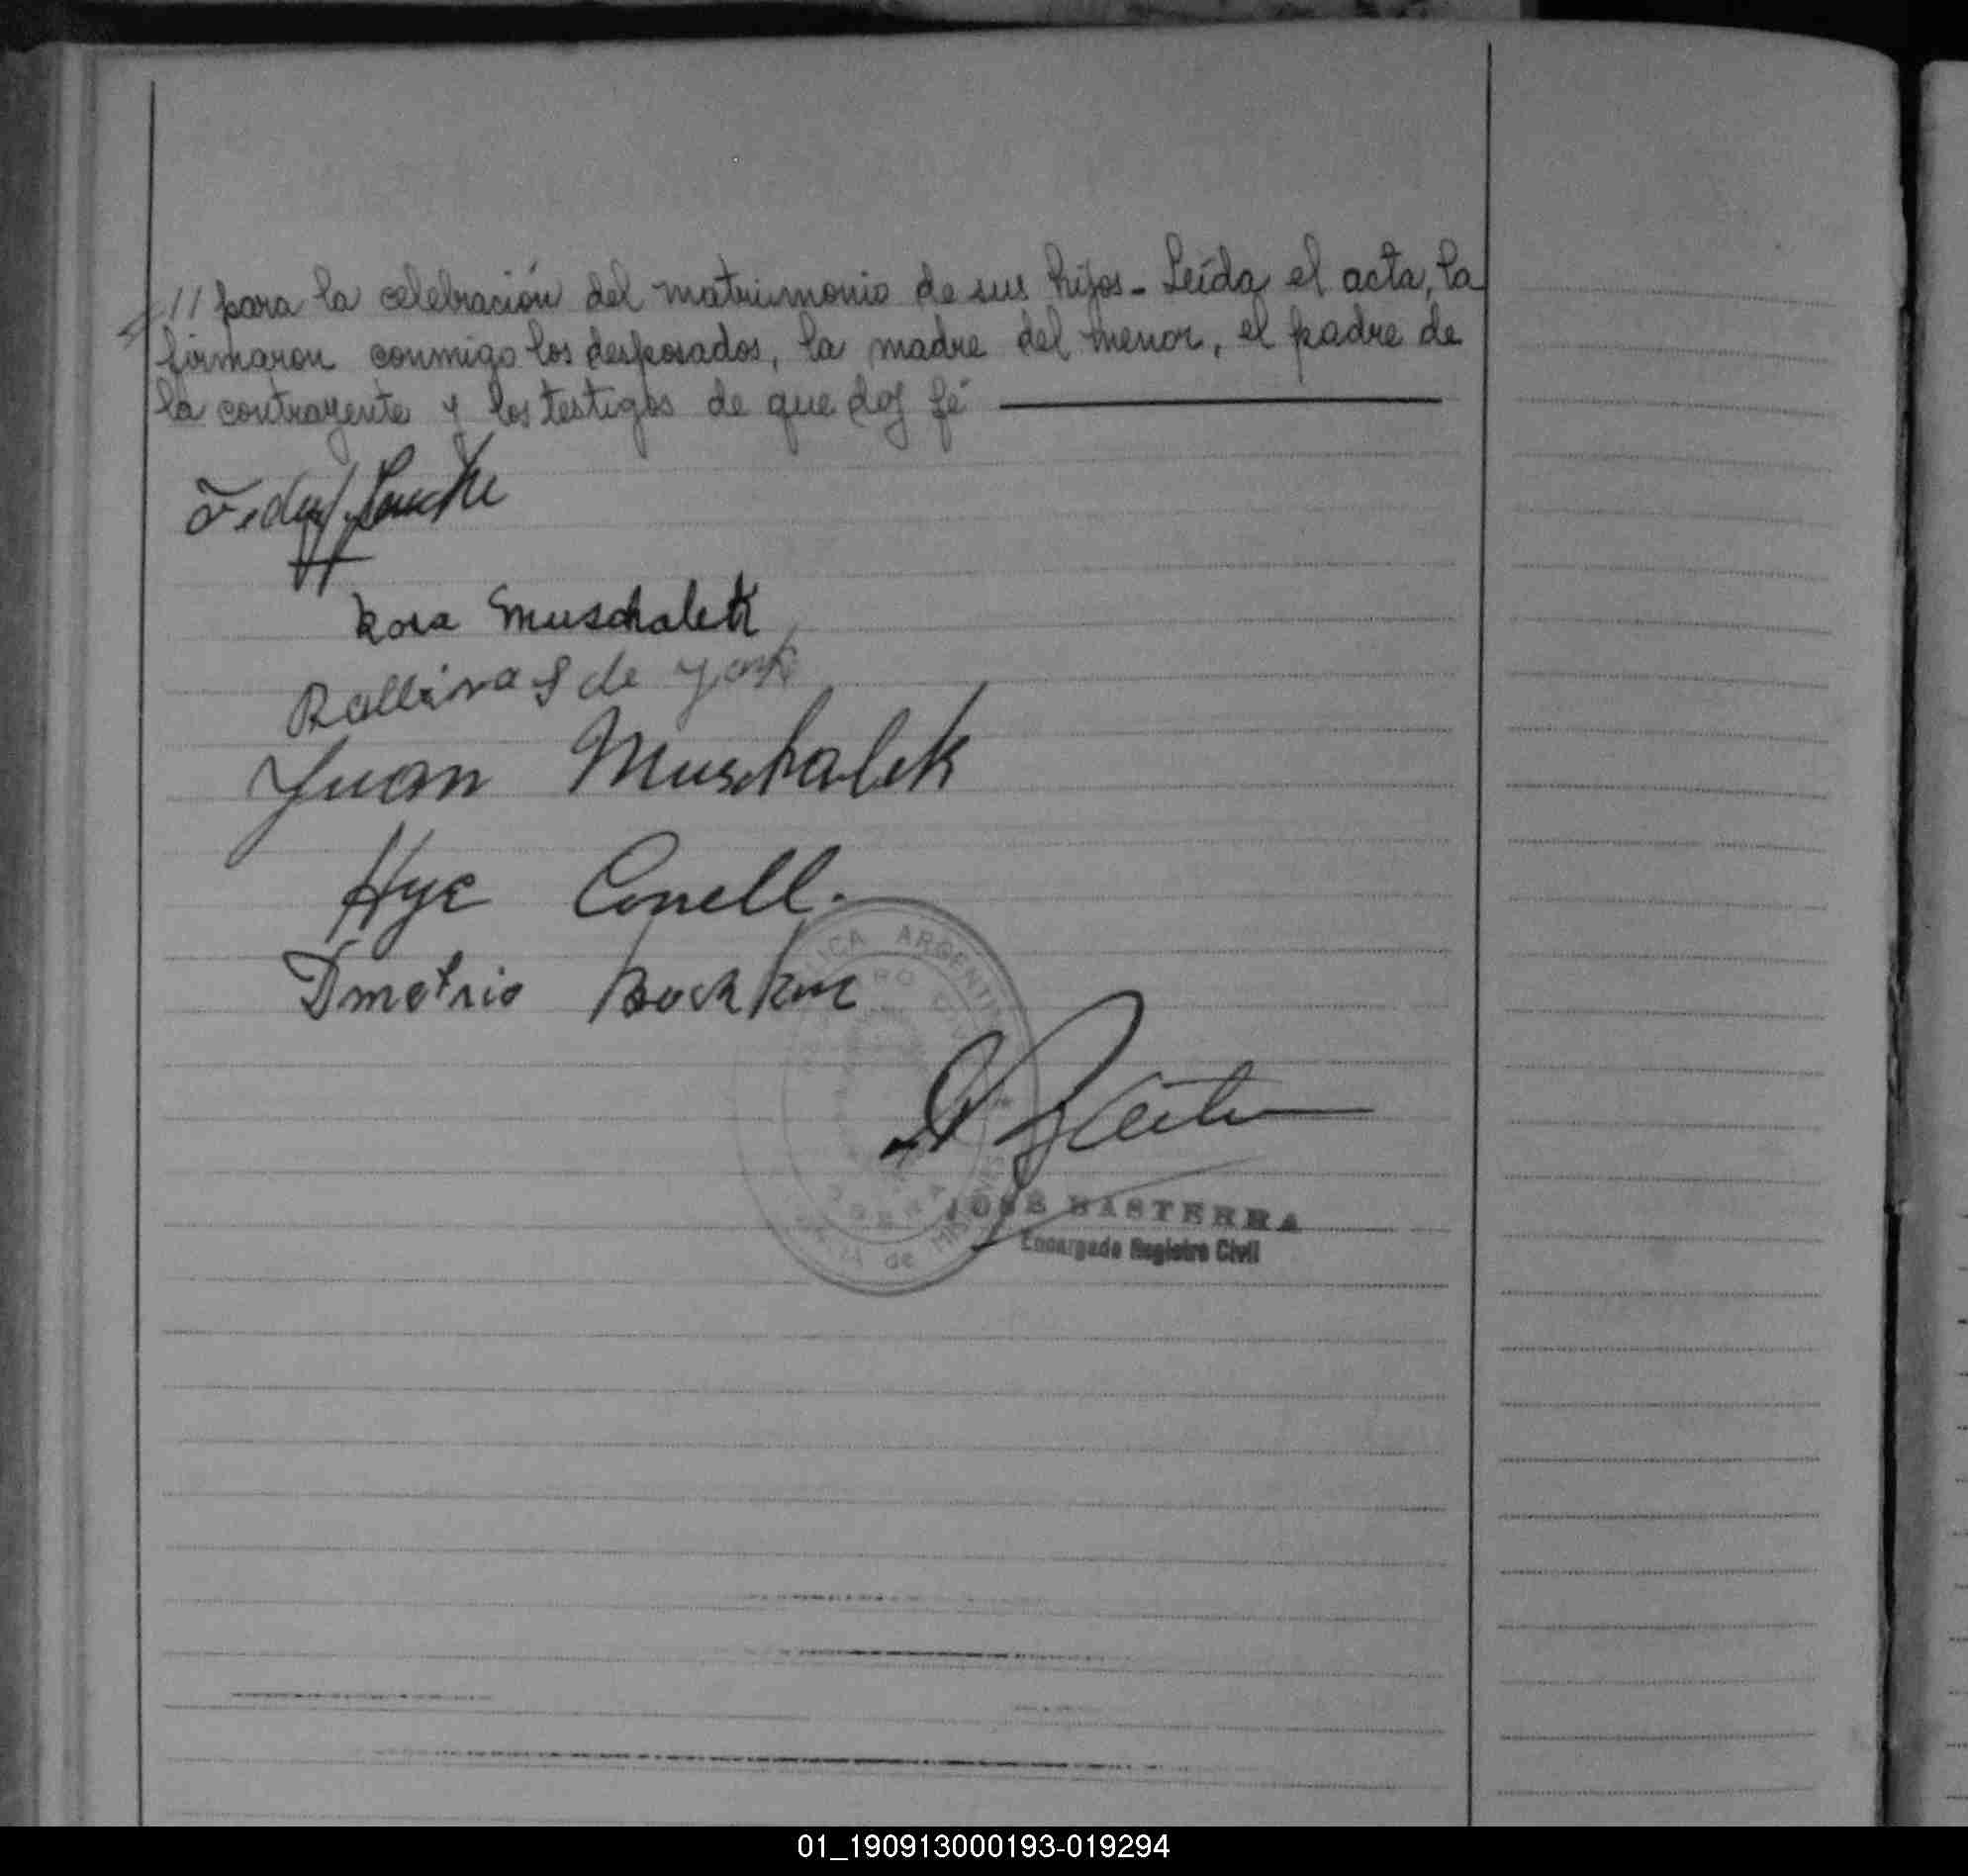 // para la celebración del matrimonio de sus hijos - Leída el acta, la
firmaron conmigo los desposados, la madre del menor, el padre de
la contrayente y los testigos de que doy fé
Rosa Muschalek
de
Juan Muschalek
Hye Conell.
Dmetrio
ARGENTINA
de
JOSÉ BASTERRA
Encargado Registro Civil
01_190913000193-019294